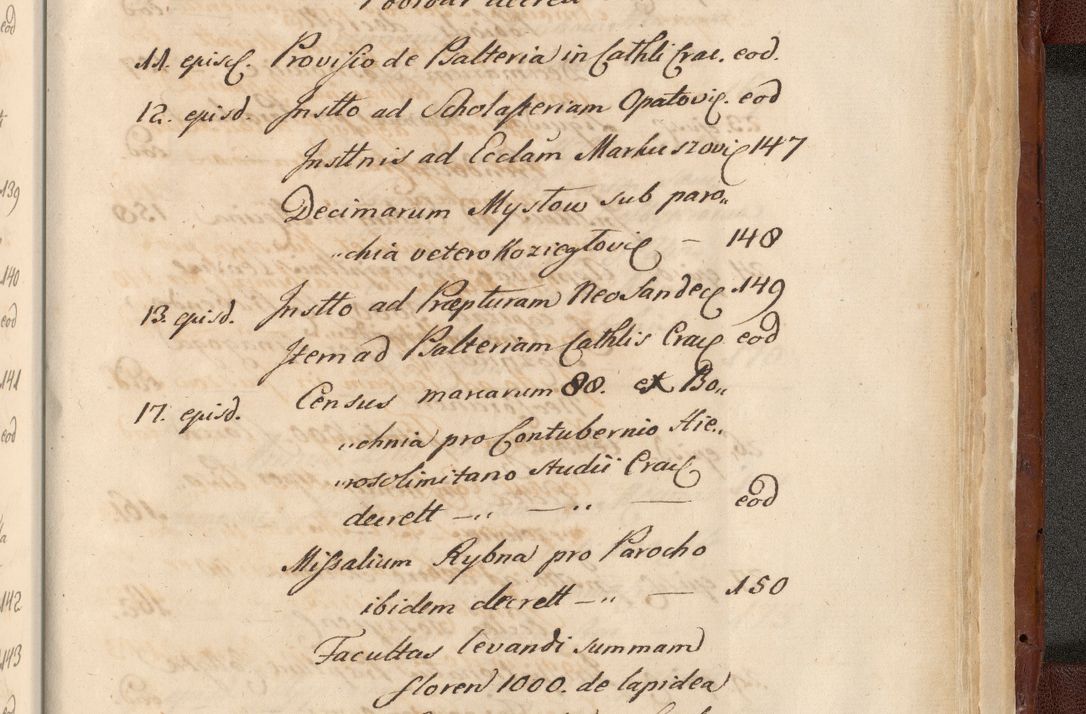 11. episc. Provisio de Psalteria in Cathli Crac. eod.
12. episd. Insttō ad Scholasteriam Opatovic. eod
Insttnis ad Ecclam Markuszovic 147
Decimarum Mystow sub paro„
„chia vetero Koziegłovic — 148
13. episd. Insttō ad Præpturam Neo Sandec. 149
Item ad Psalteriam Cathlis Crac eod
17. episd. Census marcarum 88. ex Bo„
„chnia pro Contubernio Hie„
„rosolimitano Studii Crac
decrett —„ —„ — eod
Missalium Rybna pro Parocho
ibidem decrett —„ — 150
Facultas levandi summam
floren 1000. de lapidea
eod
139
140
eod
141
eod
142
143